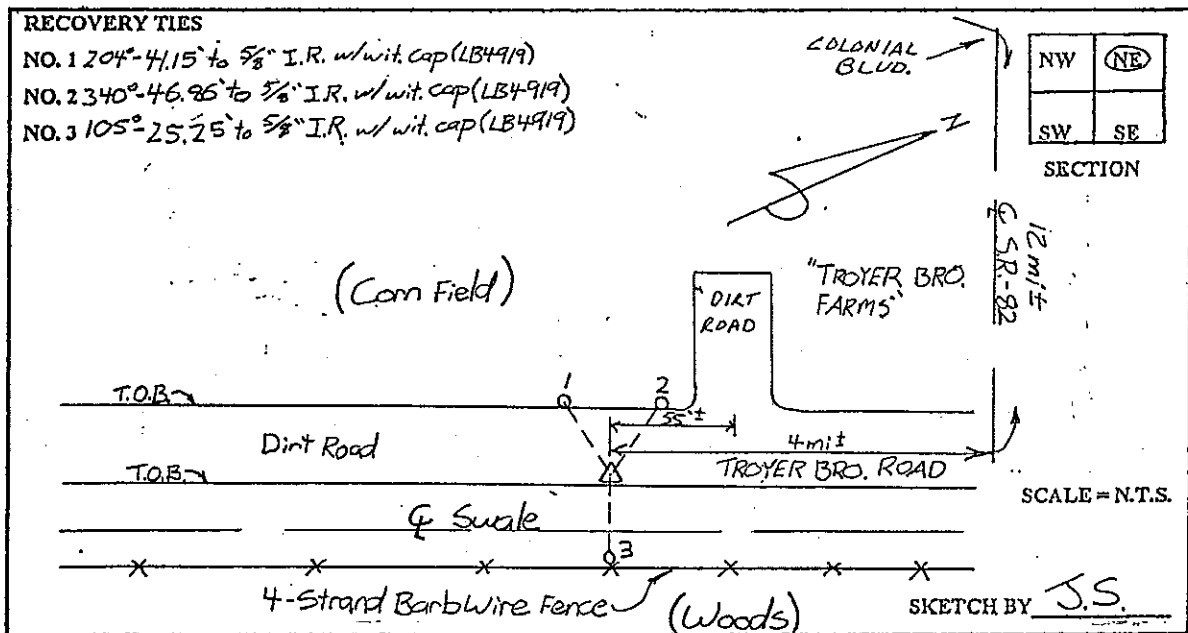 RECOVERY TIES
NO. 1 204°-41.15' to 5/8" I.R. w/wit. cap (LB4919)
NO. 2 340°-46.86' to 5/8" I.R. w/wit. cap (LB4919)
NO. 3 105°-25.25' to 5/8" I.R. w/wit. cap (LB4919)
COLONIAL
BLVD.
NW NE
SW SE
SECTION
N
12 mi±
℄ S.R.-82
(Corn Field)
"TROYER BRO.
FARMS"
DIRT
ROAD
T.O.B.
1
2
55'±
Dirt Road
4mi±
TROYER BRO. ROAD
T.O.B.
SCALE = N.T.S.
℄ Swale
3
4-Strand BarbWire Fence
(Woods)
SKETCH BY J.S.